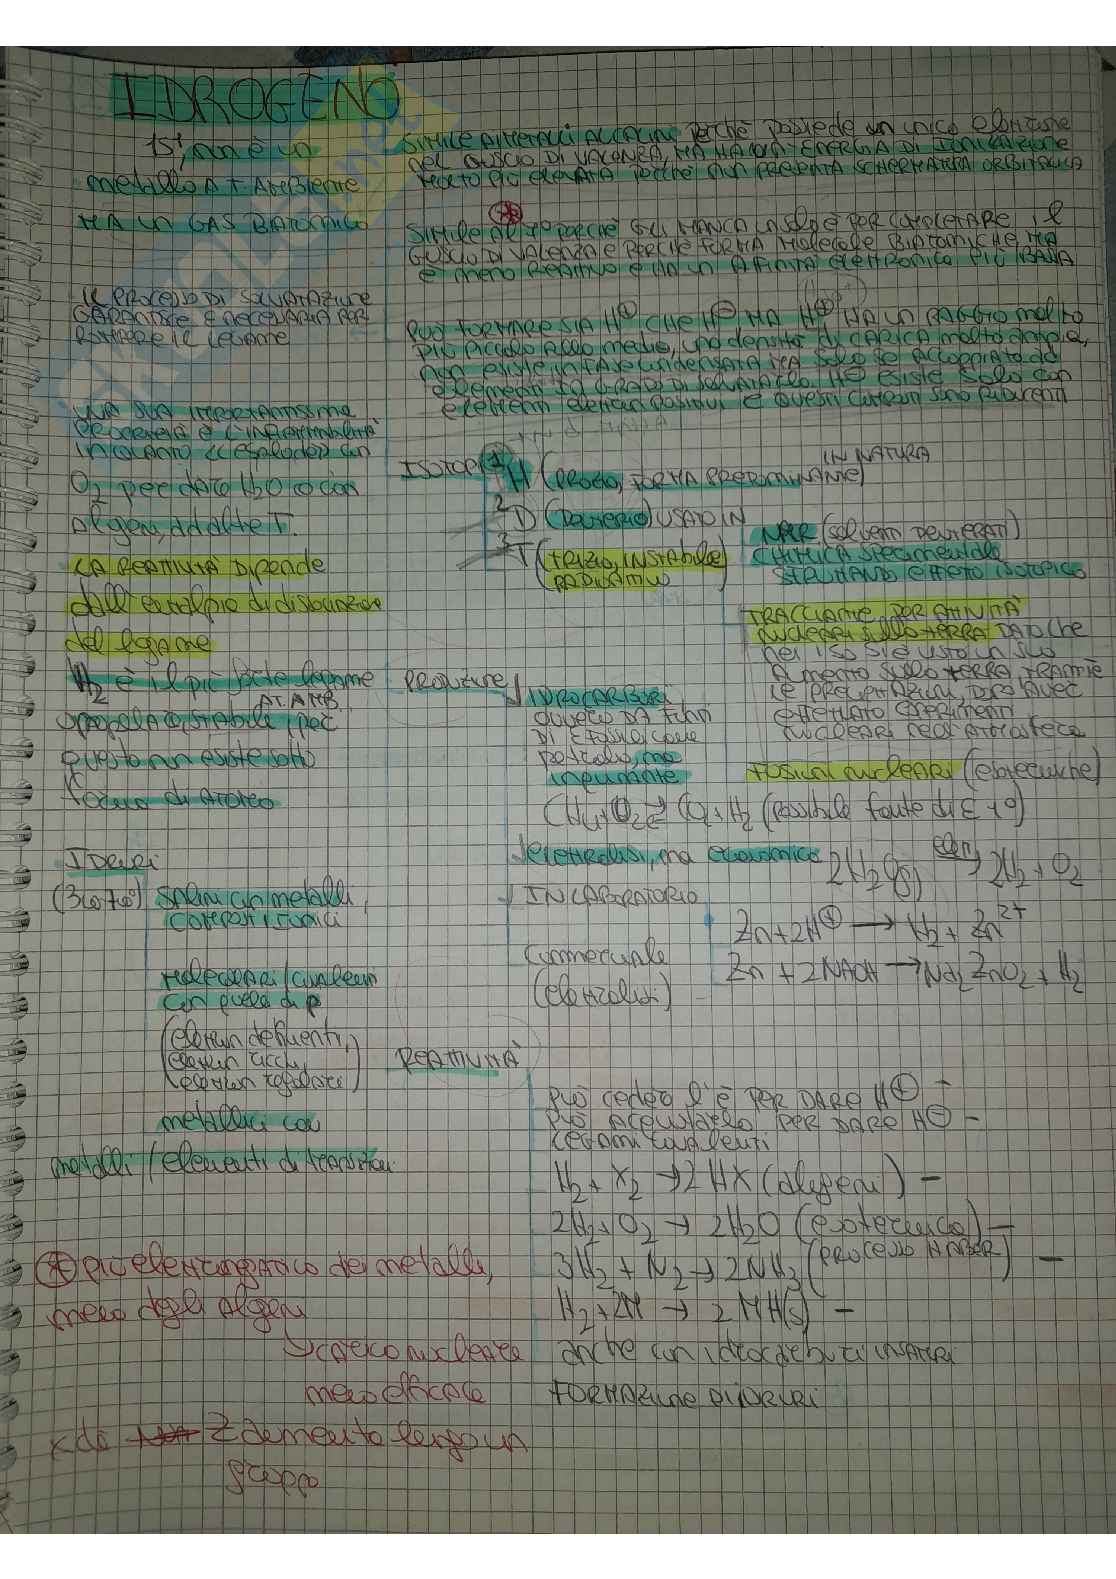 IDROGENO
1s¹, non è un
metallo A T. AMBIENTE
MA UN GAS BIATOMICO
SIMILE AI METALLI ALCALINI perchè possiede un unico elettrone
nel GUSCIO DI VALENZA, MA HA UNA ENERGIA DI IONIZZAZIONE
MOLTO PIÙ ELEVATA perchè non PRESENTA SCHERMATURA ORBITALICA
SIMILE AL 7° PERCHÈ GLI MANCA un solo e⁻ PER COMPLETARE il
GUSCIO DI VALENZA E PERCHÈ FORMA MOLECOLE BIATOMICHE, MA
è meno REATTIVO e HA UN AFFINITÀ elettronica PIÙ BASSA
IL PROCESSO DI SOLVATAZIONE
GARANTISCE E' NECESSARIA PER
ROMPERE IL LEGAME
PUÒ FORMARE SIA H⊕ CHE H⊖ MA H⊕ HA UN RAGGIO molto
più piccolo della media, una densità di CARICA molto ampia,
non esiste in FASE condensata MA SOLO se Accoppiato ad
elementi in GRADO DI solvatarlo. H⊖ esiste solo con
elementi elettron positivi e questi composti sono RIDUCENTI
UNA SUA IMPORTANTISSIMA
PROPRIETÀ È L'INFIAMMABILITÀ
IN QUANTO ((esplode)) con
O₂ per dare H₂O o con
Alogeni, ad alte T.
LA REATTIVITÀ DIPENDE
dall'entalpia di dissociazione
del legame
H₂ è il più forte legame
AT. AMB.
omopolare, stabile, per
questo non esiste sotto
forma di ATOMO
ISOTOPI ¹H (PROZIO, FORMA PREDOMINANTE) IN NATURA
²D (DEUTERIO) USATO IN
NMR (solventi DEUTERATI)
CHIMICA sperimentale
SFRUTTANDO effetto isotopico
³T (TRIZIO, INSTABILE)
RADIOATTIVO
TRACCIANTE PER ATTIVITÀ
NUCLEARI SULLA TERRA DATO che
nei 1950 si è visto un suo
AUMENTO SULLA TERRA TRAMITE
le PRECIPITAZIONI, DOPO AVER
effettuato esperimenti
NUCLEARI nell'ATMOSFERA
FUSIONI nucleari
PRODUZIONE
IDROCARBURI
ovvero DA FONTI
DI E FOSSILI, come
petrolio, ma
inquinante
CH₄ + O₂ ⇌ CO₂ + H₂ (Possibile fonte di E x °)
elettrolisi, ma economico 2H₂O(l) elett → 2H₂ + O₂
IN LABORATORIO
Zn + 2H⊕ → H₂ + Zn²⁺
Zn + 2NAOH → Na₂ZnO₂ + H₂
Commerciale
(elettrolisi)
IDRURI
SALINI con metalli,
COMPOSTI IONICI
MOLECOLARI / covalenti
con quelli di p
(elettron deficienti,
elettron ricchi,
)
metallici con
metalli / elementi di transizione
REATTIVITÀ
può cedere l'e⁻ PER DARE H⊕ -
può acquistarlo PER DARE H⊖ -
LEGAMI covalenti
H₂ + X₂ → 2HX (alogeni) -
2H₂ + O₂ → 2H₂O (esotermica) -
3H₂ + N₂ → 2NH₃ (PROCESSO HABER) -
H₂ + 2M → 2MH(s) -
anche con idrocarburi INSATURI
FORMAZIONE DI IDRURI
* più elettronegativo dei metalli,
meno degli Alogeni
↳ carica nucleare
meno efficace
Z aumenta lungo un
gruppo